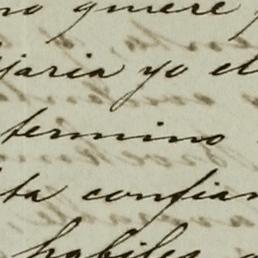 no quiere
jaria yo el
termino
ta confian
habiles